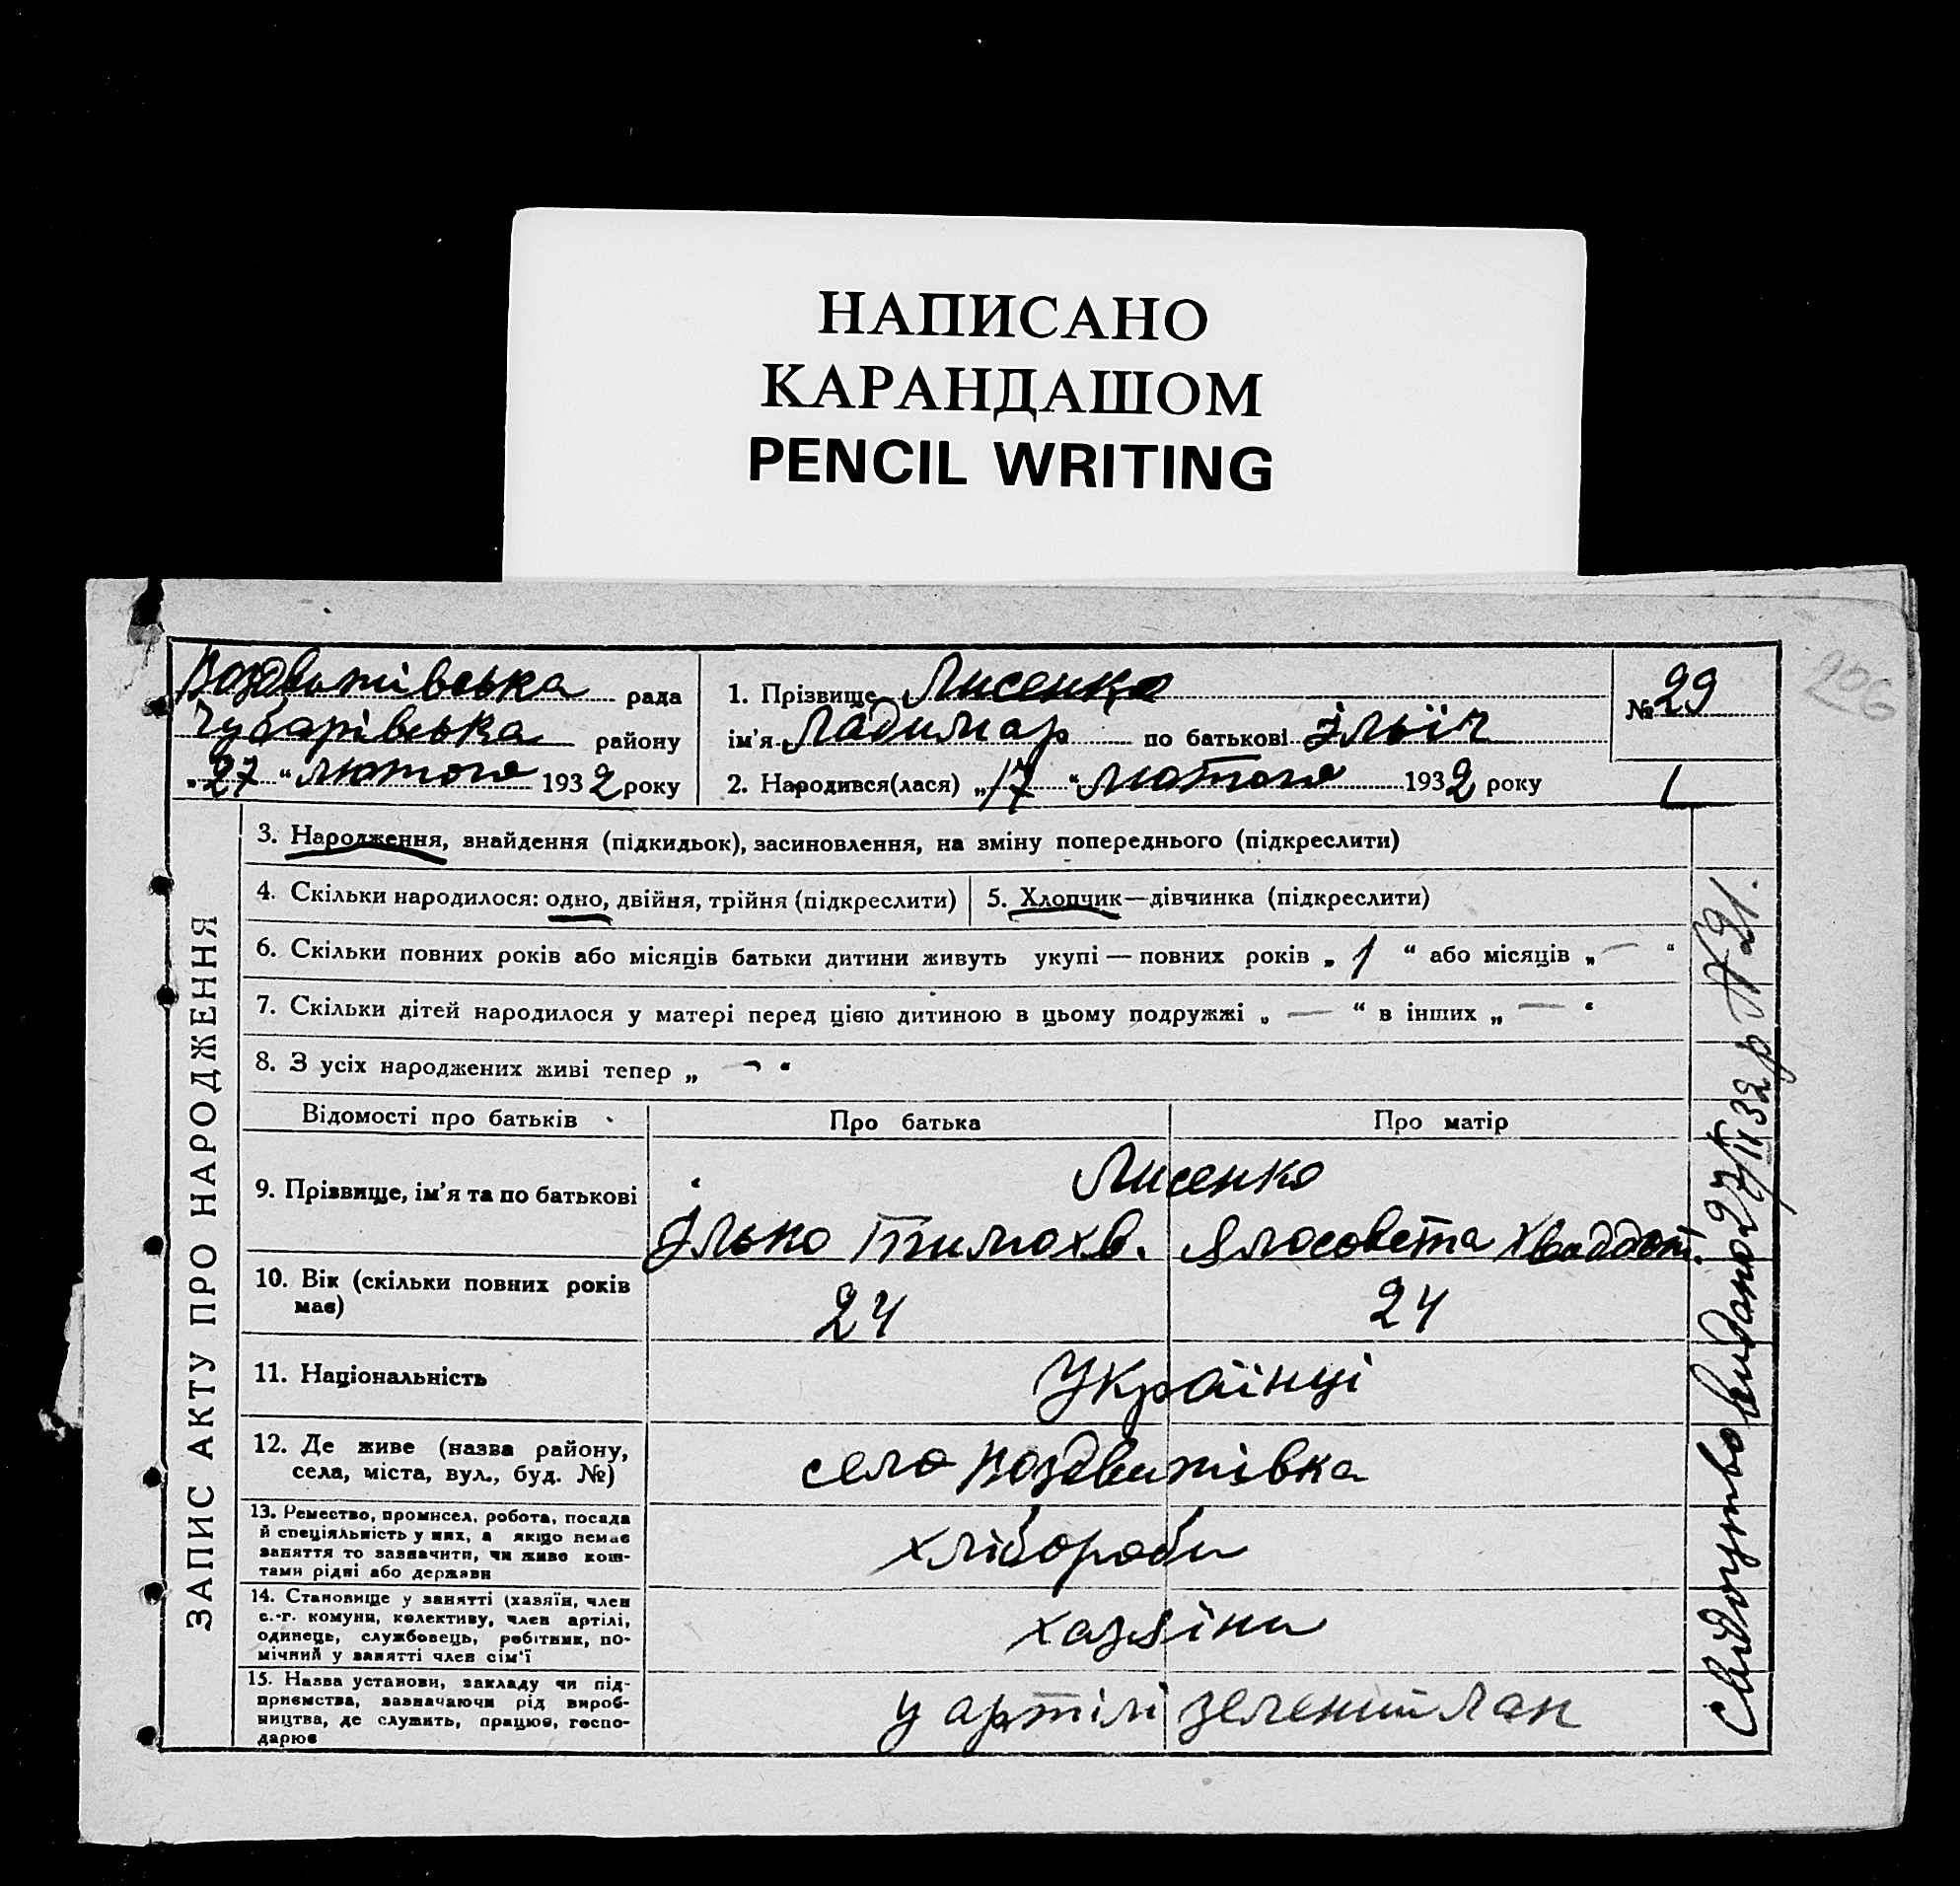 НАПИСАНО
КАРАНДАШОМ
PENCIL WRITING
206
Воздвижівська рада
Чубарівська району
„27“ лютого 1932 року
1. Прізвище Лисенко
ім'я Ладимар по батькові Ільіч
2. Народився(лася) „17“ лютого 1932 року
№ 29
ЗАПИС АКТУ ПРО НАРОДЖЕННЯ
3. Народження, знайдення (підкидьок), засиновлення, на зміну попереднього (підкреслити)
4. Скільки народилося: одно, двійня, трійня (підкреслити)
5. Хлопчик—дівчинка (підкреслити)
6. Скільки повних років або місяців батьки дитини живуть укупі — повних років „ 1 “ або місяців „ — “
7. Скільки дітей народилося у матері перед цією дитиною в цьому подружжі „ — “ в інших „ — “
8. З усіх народжених живі тепер „ — “
Відомості про батьків
Про батька
Про матір
9. Прізвище, ім'я та по батькові
Лисенко
Ілько Тимохв. Ялосовета
10. Вік (скільки повних років
має)
24 24
11. Національність
Українці
12. Де живе (назва району,
села, міста, вул., буд. №)
село Воздвижівка
13. Ремество, промисел, робота, посада
й спеціяльність у них, а якщо немає
заняття то зазначити, чи живе кош-
тами рідні або держави
хлібороби
14. Становище у занятті (хазяїн, член
с.-г. комуни, колективу, член артілі,
одинець, службовець, робітник, по-
мічний у занятті член сім'ї
хазяіни
15. Назва установи, закладу чи під-
приємства, зазначаючи рід вироб-
ництва, де служить, працює, госпо-
дарює
у артілі зелений лан
Свидоцтво видано 27/II 32 р № 21.